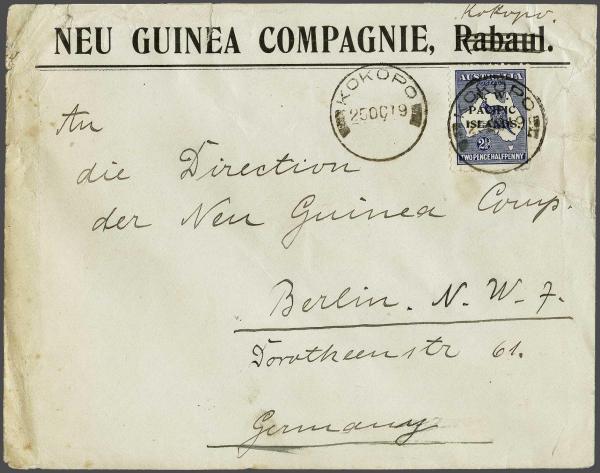 Kokopo.
NEU GUINEA COMPAGNIE, Rabaul.
KOKOPO
25 OC 19
AUSTRALIA
N. W.
PACIFIC
ISLANDS.
2½
TWOPENCEHALFPENNY
KOKOPO
An
die Direction
der Neu Guinea Comp.
Berlin. N. W. 7.
Dorotheenstr 61.
Germany